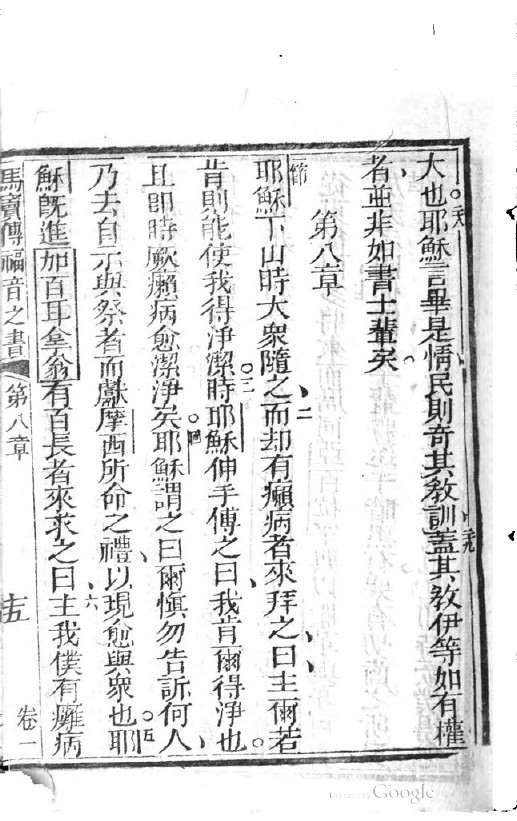 大也。耶穌言畢是情民則奇其教訓、蓋其教伊等如有權
者、並非如書士輩矣。
第八章
耶穌下山時大衆隨之、而却有癩病者來拜之、曰、主爾若
肯則能使我得淨潔。時耶穌伸手傅之、曰、我肯爾得淨也。
且即時厥癩病愈潔淨矣。耶穌謂之曰爾慎勿告訴何人、
乃去自示與祭者而獻摩西所命之禮、以現愈與衆也。耶
穌既進加百耳拿翁有百長者來求之曰、主我僕有癱病
馬竇傳福音之書 第八章 十五 卷一
Google